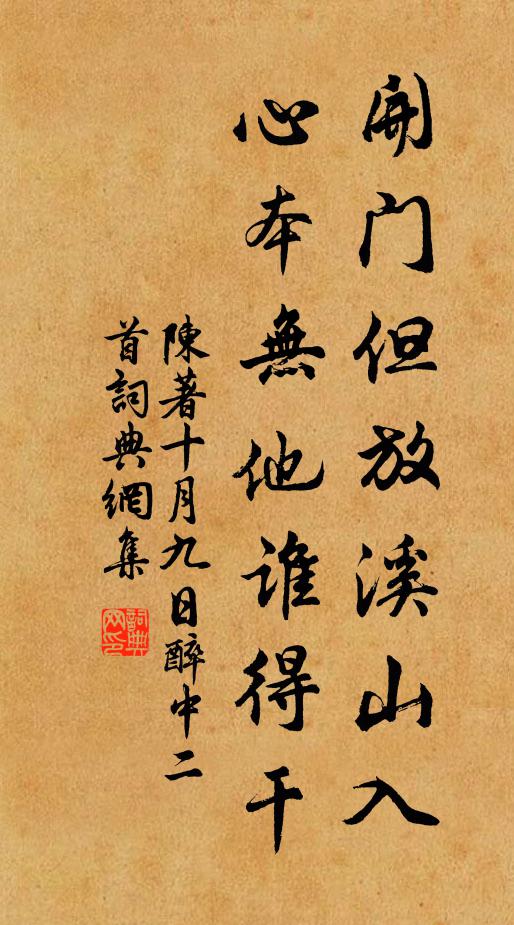 開门但放溪山入
心本無他谁得干
陳著十月九日醉中二
首詞典網集
詞典
网印